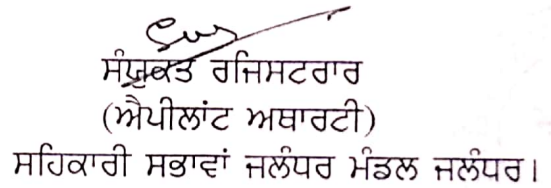 ਸੰਯੁਕਤ ਰਜਿਸਟਰਾਰ
(ਐਪੀਲਾਂਟ ਅਥਾਰਟੀ)
ਸਹਿਕਾਰੀ ਸਭਾਵਾਂ ਜਲੰਧਰ ਮੰਡਲ ਜਲੰਧਰ।